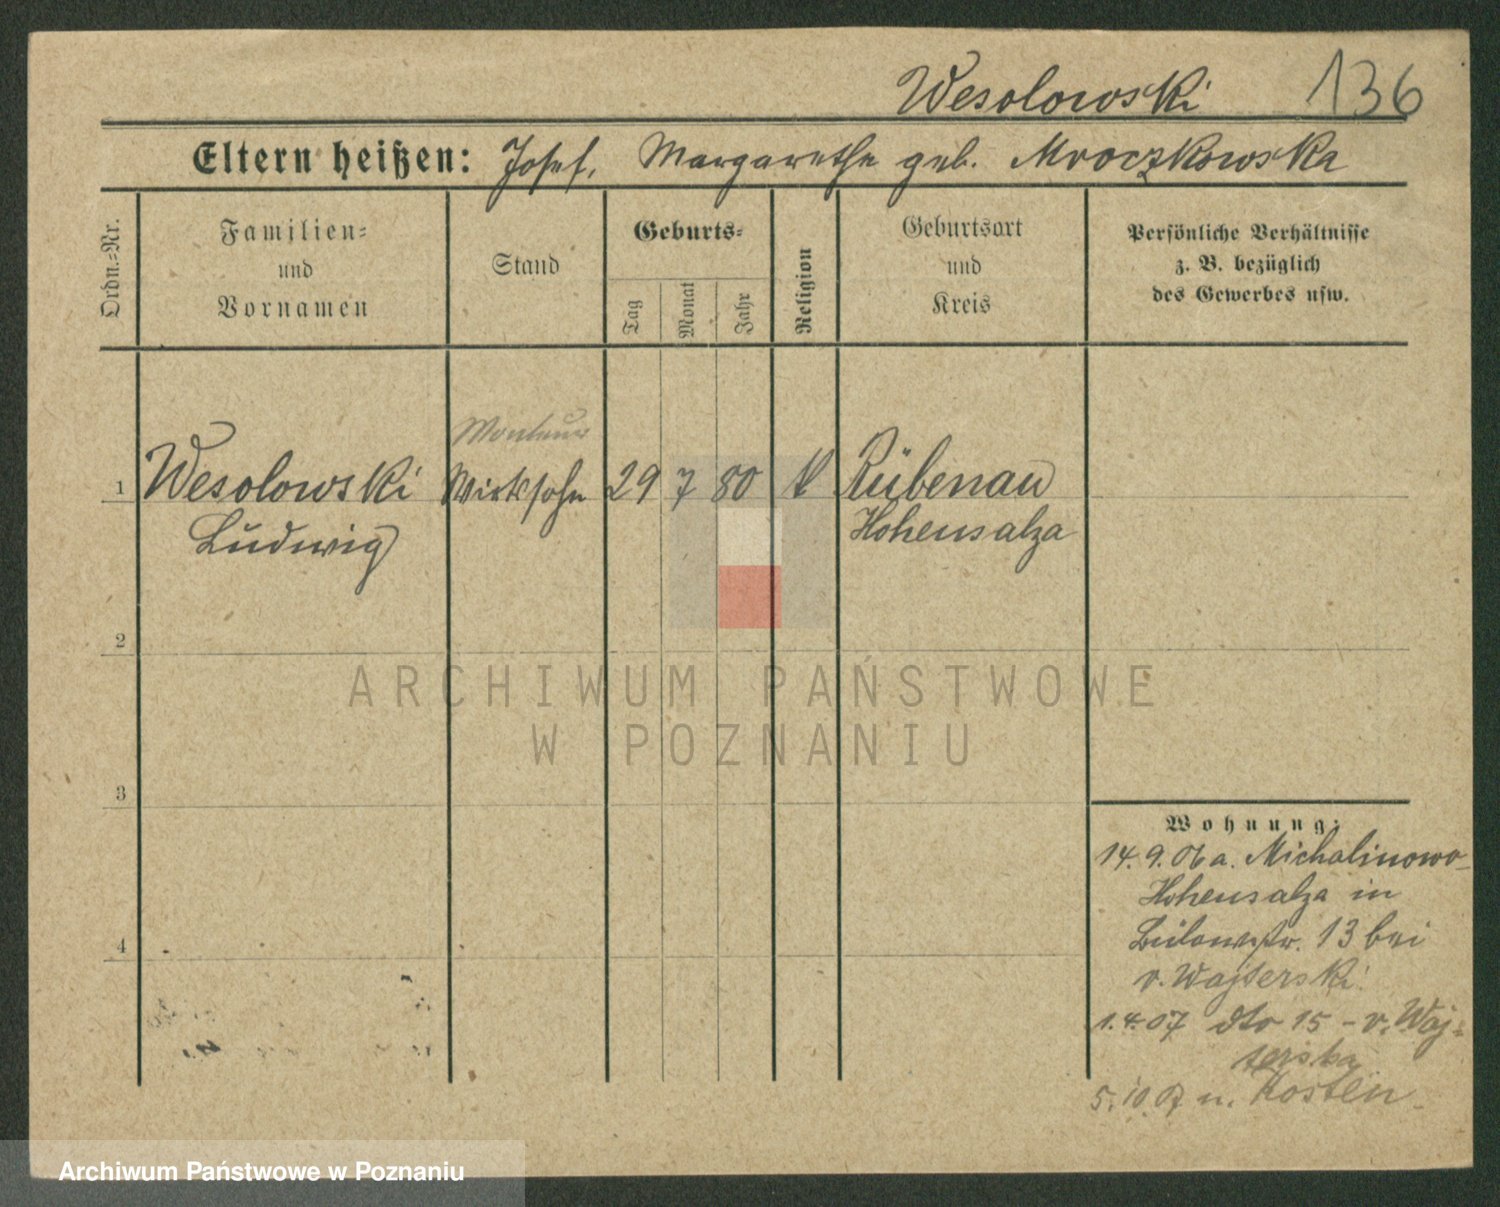 Wesolowski 136
Eltern heißen: Josef, Margarethe geb. Mroczkowska
Ordn.-Nr.
Familien-
und
Vornamen
Stand
Geburts-
Tag
Monat
Jahr
Religion
Geburtsort
und
Kreis
Persönliche Verhältnisse
z. B. bezüglich
des Gewerbes usw.
Monteur
1 Wesolowski Wirtssohn 29 7 80 k Rübenau
Ludwig Hohensalza
2
ARCHIWUM PAŃSTWOWE
W POZNANIU
3
Wohnung:
14. 9. 06 a. Michalinowo-
Hohensalza in
Bülowstr. 13 bei
v. Wajserski
4
1. 4. 07 dto 15 - v. Waj-
serska
5. 10. 07 n. Kosten
Archiwum Państwowe w Poznaniu